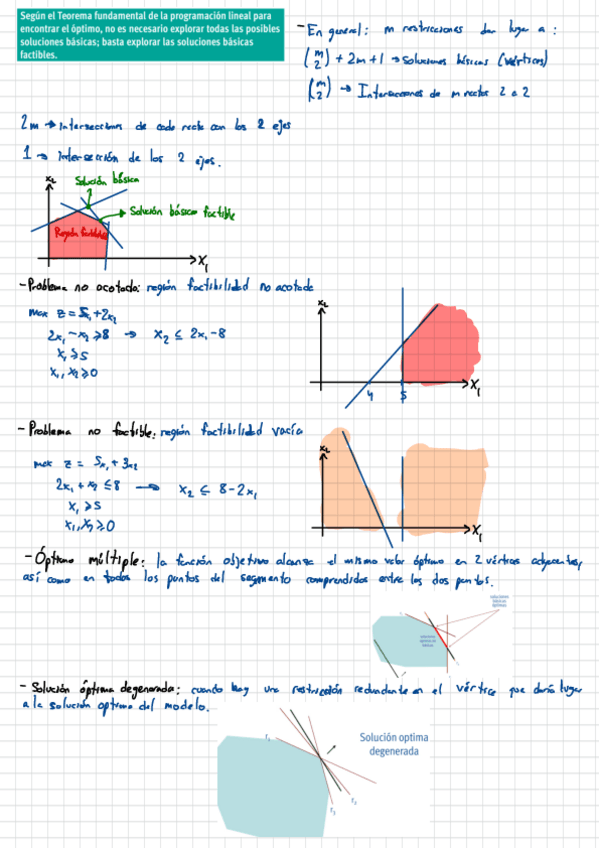 Según el Teorema fundamental de la programación lineal para
encontrar el óptimo, no es necesario explorar todas las posibles
soluciones básicas; basta explorar las soluciones básicas
factibles.
- En general: m restricciones dan lugar a:
(m 2) + 2m + 1 → Soluciones básicas (vértices)
(m 2) → Intersecciones de m rectas 2 a 2
2m → Intersecciones de cada recta con los 2 ejes
1 → Intersección de los 2 ejes.
x₂
Solución básica
Solución básica factible
Región factible
x₁
- Problema no acotado: región factibilidad no acotada
max z = 5x₁ + 2x₂
2x₁ - x₂ ≥ 8 → x₂ ≤ 2x₁ - 8
x₁ ≥ 5
x₁, x₂ ≥ 0
x₂
4
5
x₁
- Problema no factible: región factibilidad vacía
max z = 5x₁ + 3x₂
2x₁ + x₂ ≤ 8 → x₂ ≤ 8 - 2x₁
x₁ ≥ 5
x₁, x₂ ≥ 0
x₂
x₁
- Óptimo múltiple: la función objetivo alcanza el mismo valor óptimo en 2 vértices adyacentes,
así como en todos los puntos del segmento comprendidos entre los dos puntos.
soluciones
básicas
óptimas
soluciones
óptimas no
básicas
- Solución óptima degenerada: cuando hay una restricción redundante en el vértice que daría lugar
a la solución optima del modelo.
r₁
Solución optima
degenerada
r₂
r₃